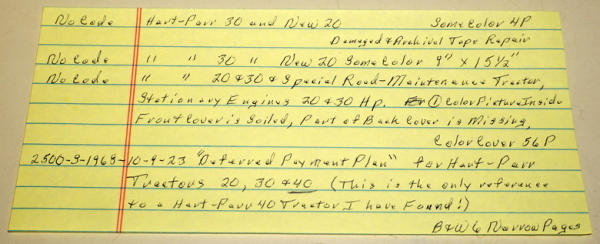 No Code Hart-Parr 30 and New 20 Some Color 4P
Damaged & Archival Tape Repair
No Code " " 30 " New 20 Some Color 9" x 15 1/2"
No Code " " 20 & 30 & Special Road-Maintenance Tractor,
Stationary Engines 20 & 30 Hp. ① Color Picture Inside
Front Cover is Soiled, Part of Back Cover is Missing,
Color Cover 56P
2500-S-1968-10-9-23 "Deferred Payment Plan" for Hart-Parr
Tractors 20, 30 & 40 (This is the only reference
to a Hart-Parr 40 Tractor I have Found!)
B&W 6 Narrow Pages